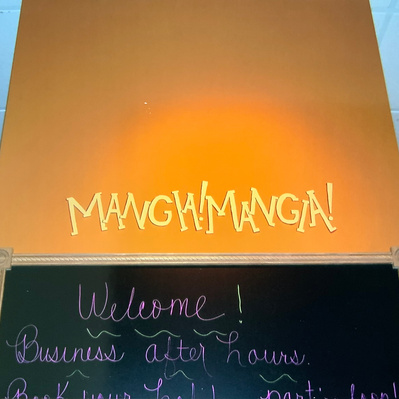 MANGIA! MANGIA!
Welcome!
Business after hours.
Book your